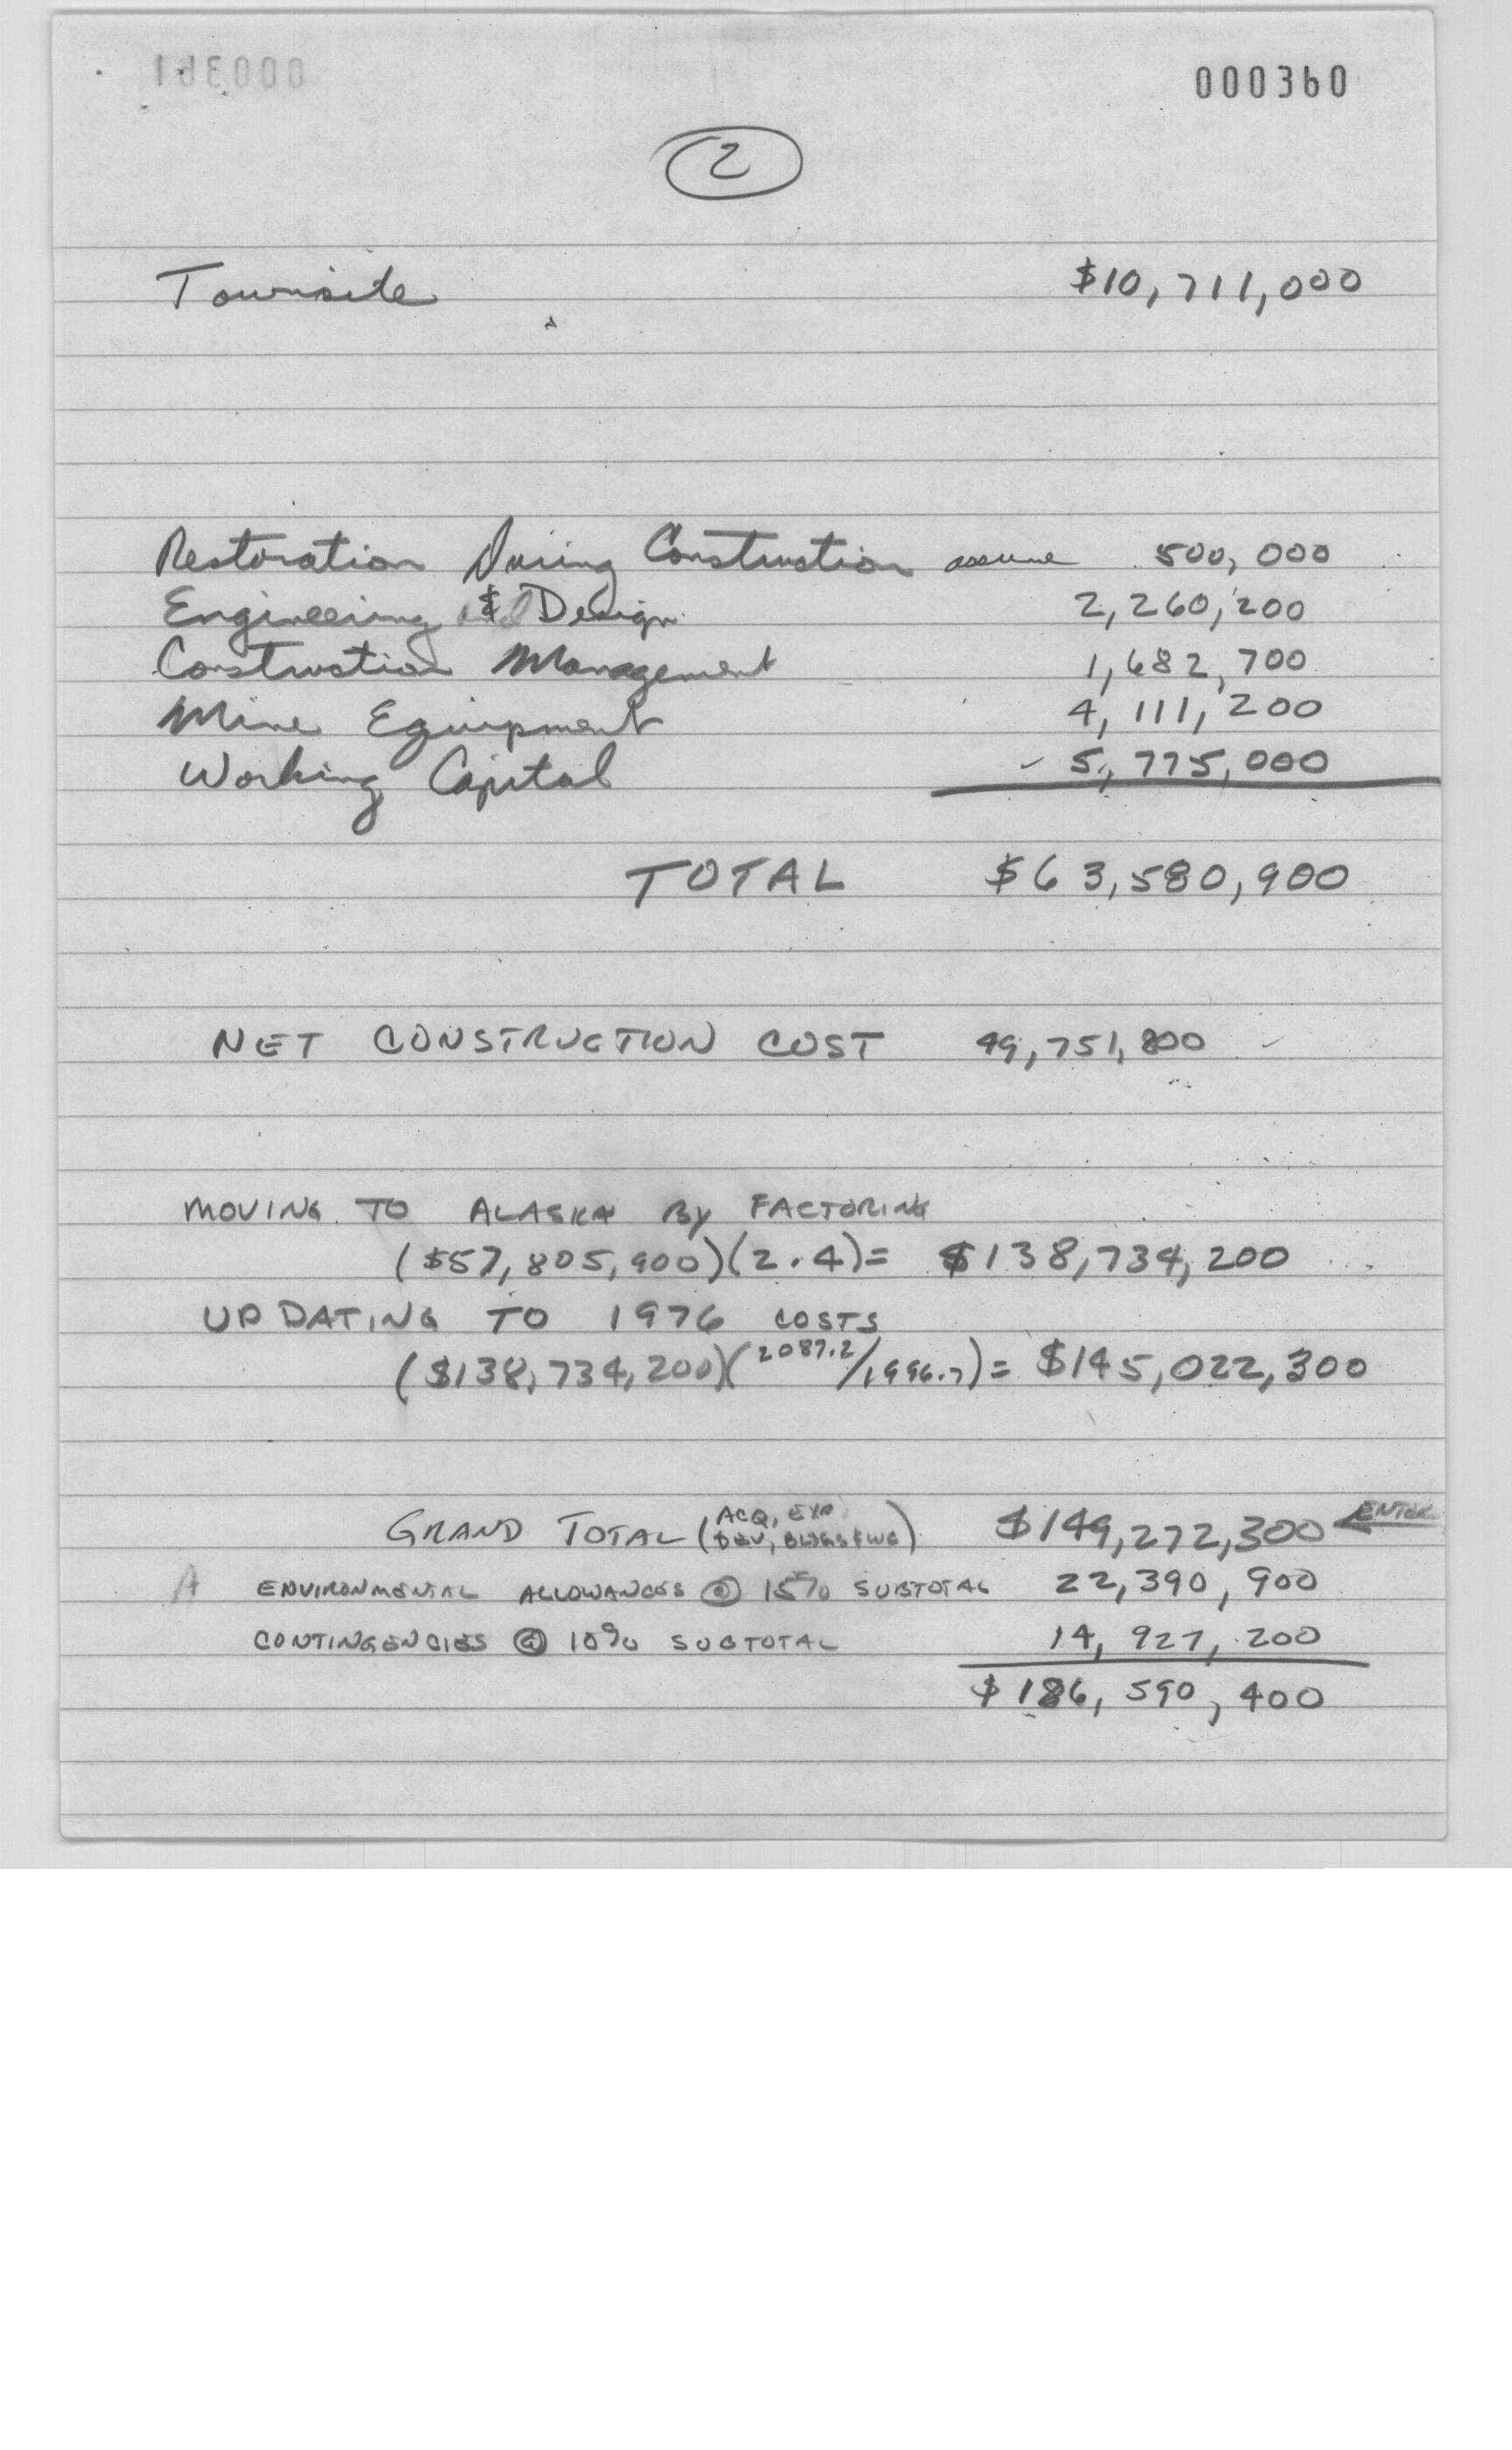 000360
2
Townsite $10,711,000
Restoration During Construction assume 500,000
Engineering & Design 2,260,200
Construction Management 1,682,700
Mine Equipment 4,111,200
Working Capital - 5,775,000
TOTAL $63,580,900
NET CONSTRUCTION COST 49,751,800
MOVING TO ALASKA BY FACTORING
($57,805,900)(2.4)= $138,734,200
UPDATING TO 1976 COSTS
($138,734,200)(2087.2/1996.7)= $145,022,300
GRAND TOTAL (ACQ, EXP, $149,272,300 ← ENTER
DEV, BLDGS
ENVIRONMENTAL ALLOWANCES @ 15% SUBTOTAL 22,390,900
CONTINGENCIES @ 10% SUBTOTAL 14,927,200
$186,590,400